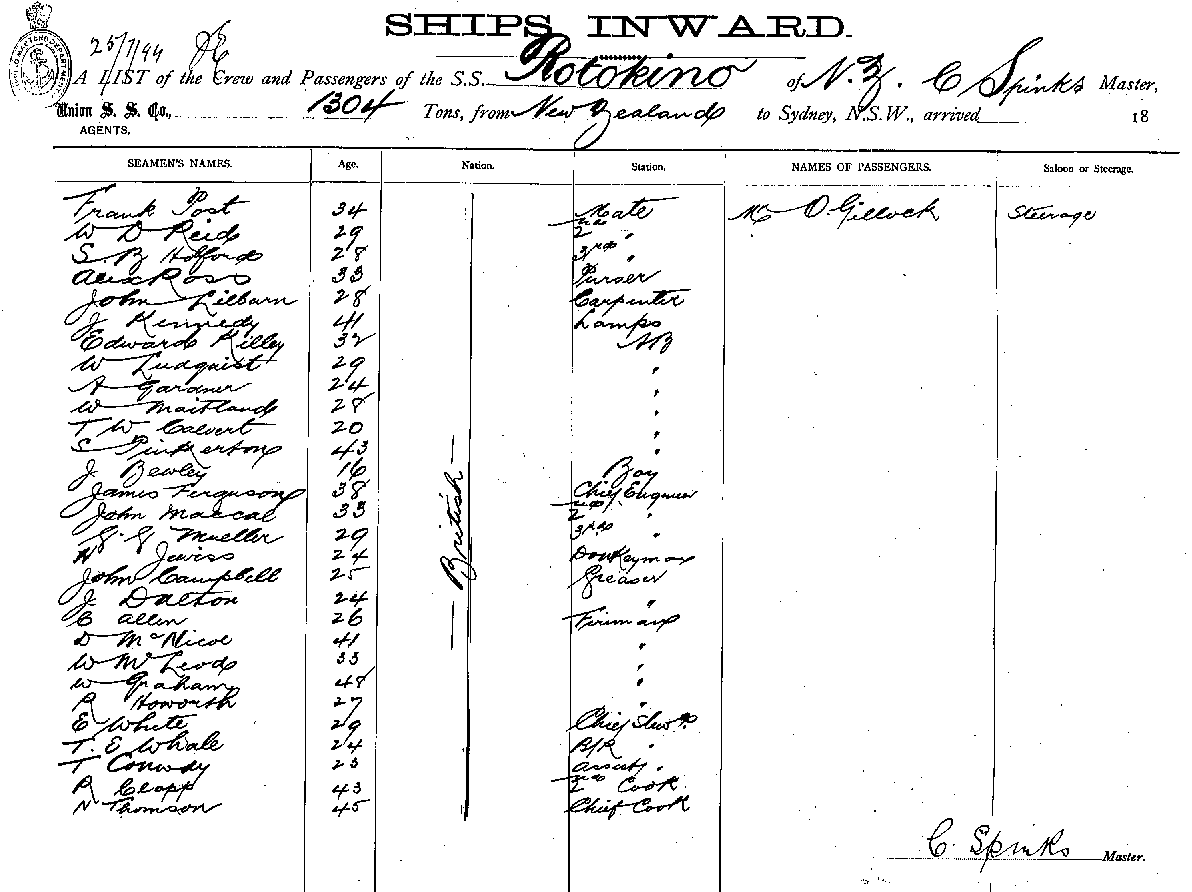 SHIPS INWARD.
25/7/99
A LIST of the Crew and Passengers of the S.S. Rotokino of N.Z. C Spinks Master,
Union S. S. Co., 1304 Tons, from New Zealand to Sydney, N.S.W., arrived 18
AGENTS.
SEAMEN'S NAMES. Age. Nation. Station. NAMES OF PASSENGERS. Saloon or Steerage.
Frank Post 34 Mate Mr D Gillock Steerage
W D Reid 29 2nd "
S. B Holford 28 3rd "
Alex Ross 33 Purser
John Lilburn 28 Carpenter
J Kennedy 41 Lamps
Edward Killey 32 AB
W Ludquist 29 "
A Gardner 24 "
W Maitland 28 "
T W Calvert 20 "
S Pinkerton 43 "
J Bewley 16 Boy
James Ferguson 38 Chief Engineer
John Maccal 33 2nd "
G. G Mueller 29 3rd "
N Jewiss 24 Donkeyman
John Campbell 25 Greaser
J Dalton 24 "
C Allen 26 Fireman
D McNicol 41 "
W McLeod 33 "
W Graham 48 "
R Howorth 27 "
E White 29 Chief Stewd
T. E Whale 24 P/R "
T Conway 23 Assist "
R Clapp 43 2nd Cook
N Thomson 45 Chief Cook
British
C. Spinks Master.